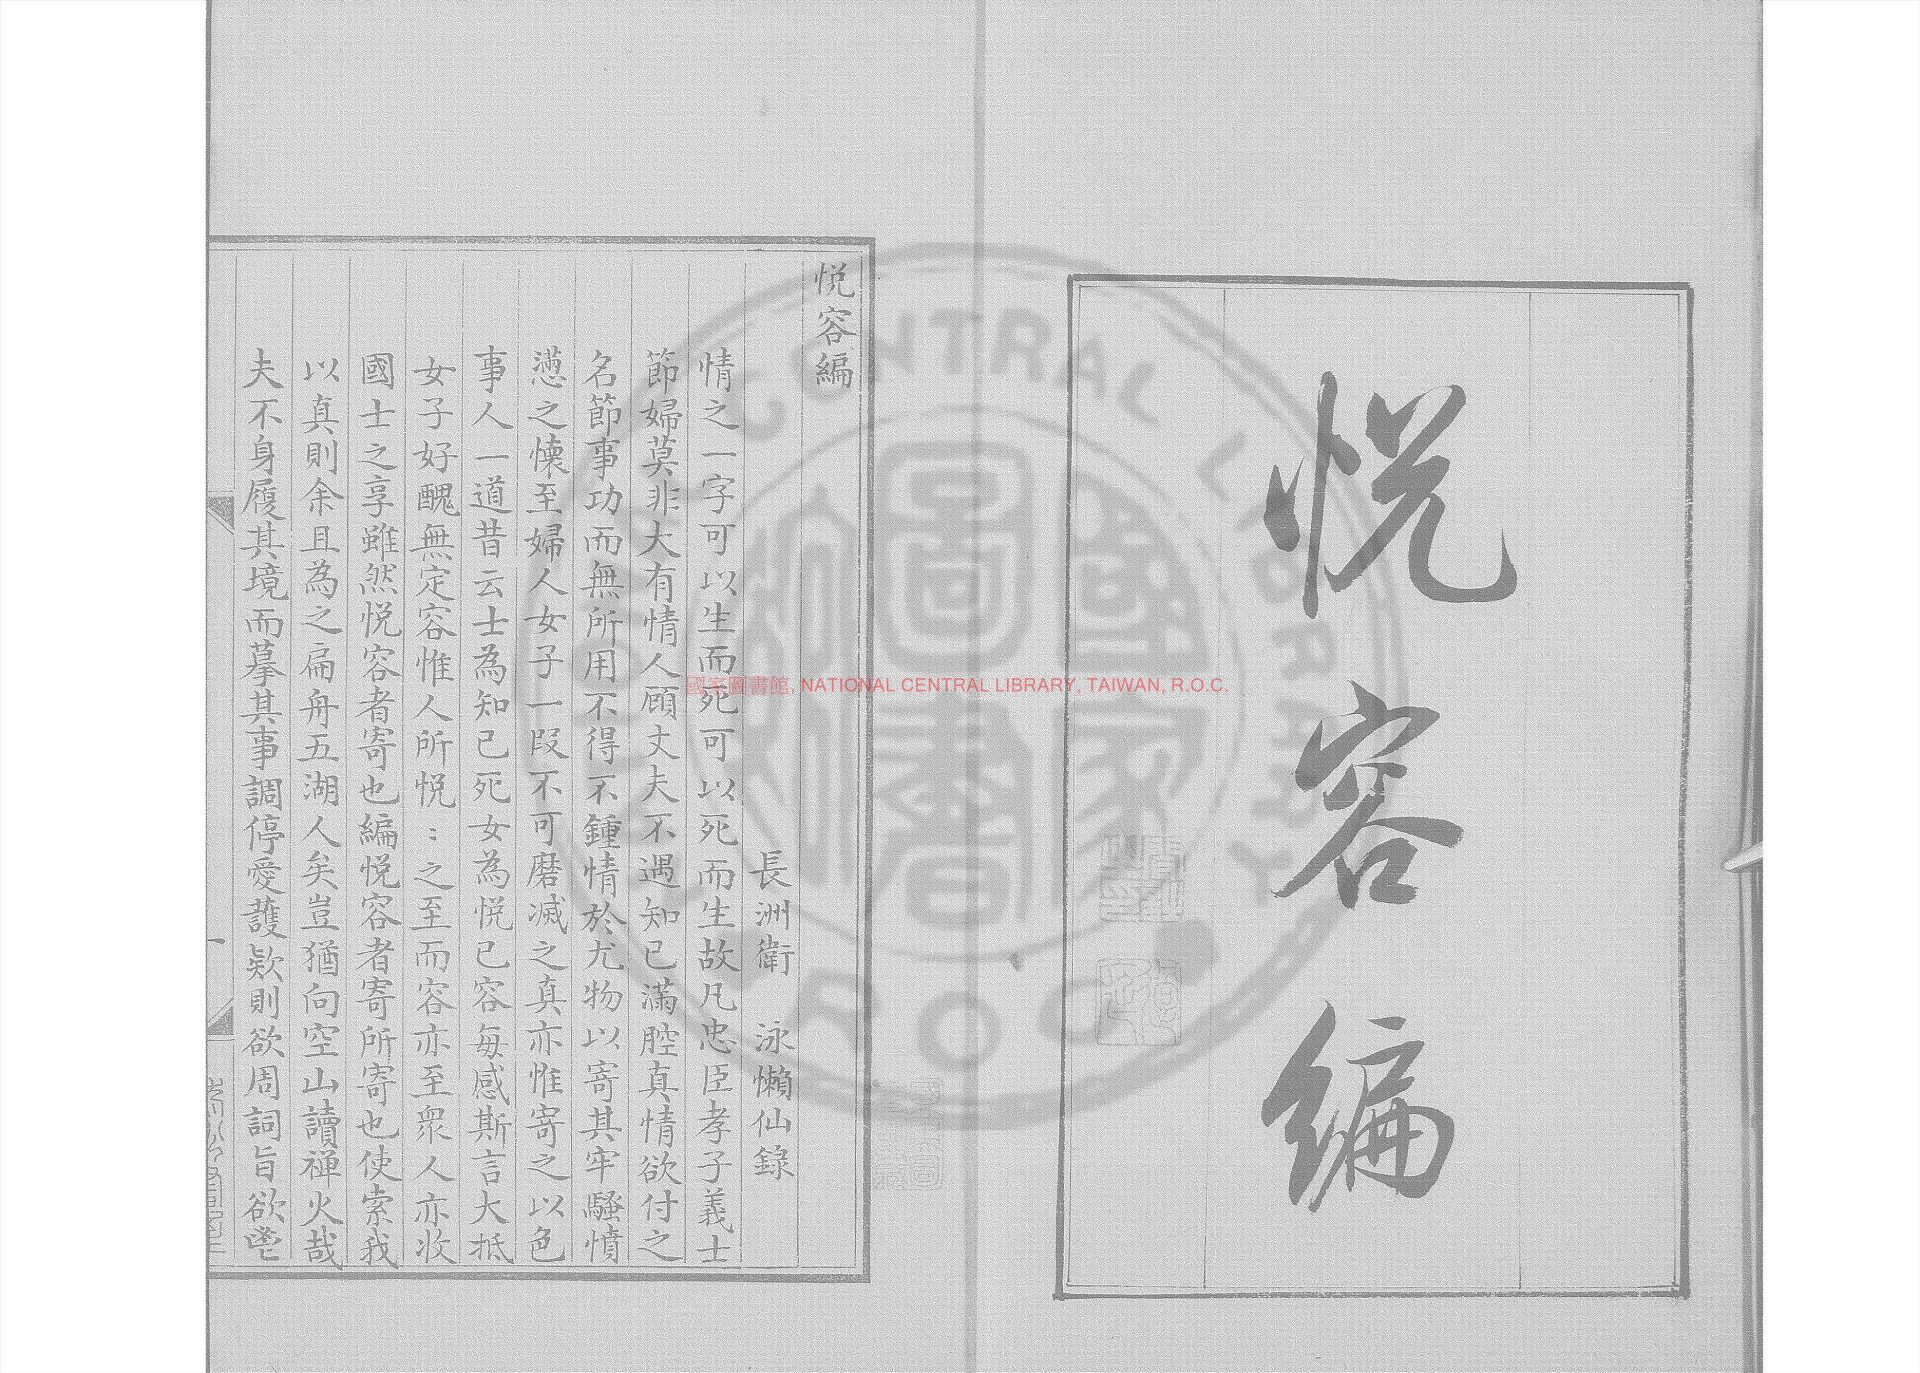 悦容編
悦容編
長洲衛 泳懶仙錄
情之一字可以生而死可以死而生故凡忠臣孝子義士
節婦莫非大有情人顧丈夫不遇知已滿腔真情欲付之
名節事功而無所用不得不鍾情於尤物以寄其牢騷憤
懣之懐至婦人女子一段不可磨滅之真亦惟寄之以色
事人一道昔云士為知已死女為悦已容每感斯言大抵
女子好醜無定容惟人所悦：之至而容亦至眾人亦收
國士之享雖然悦容者寄也編悦容者寄所寄也使索我
以真則余且為之扁舟五湖人矣豈猶向空山讀禅火哉
夫不身履其境而摹其事調停愛護欵則欲周詞旨欲
國家圖書館, NATIONAL CENTRAL LIBRARY, TAIWAN, R.O.C.
國家圖書館
NATIONAL CENTRAL LIBRARY
R O C